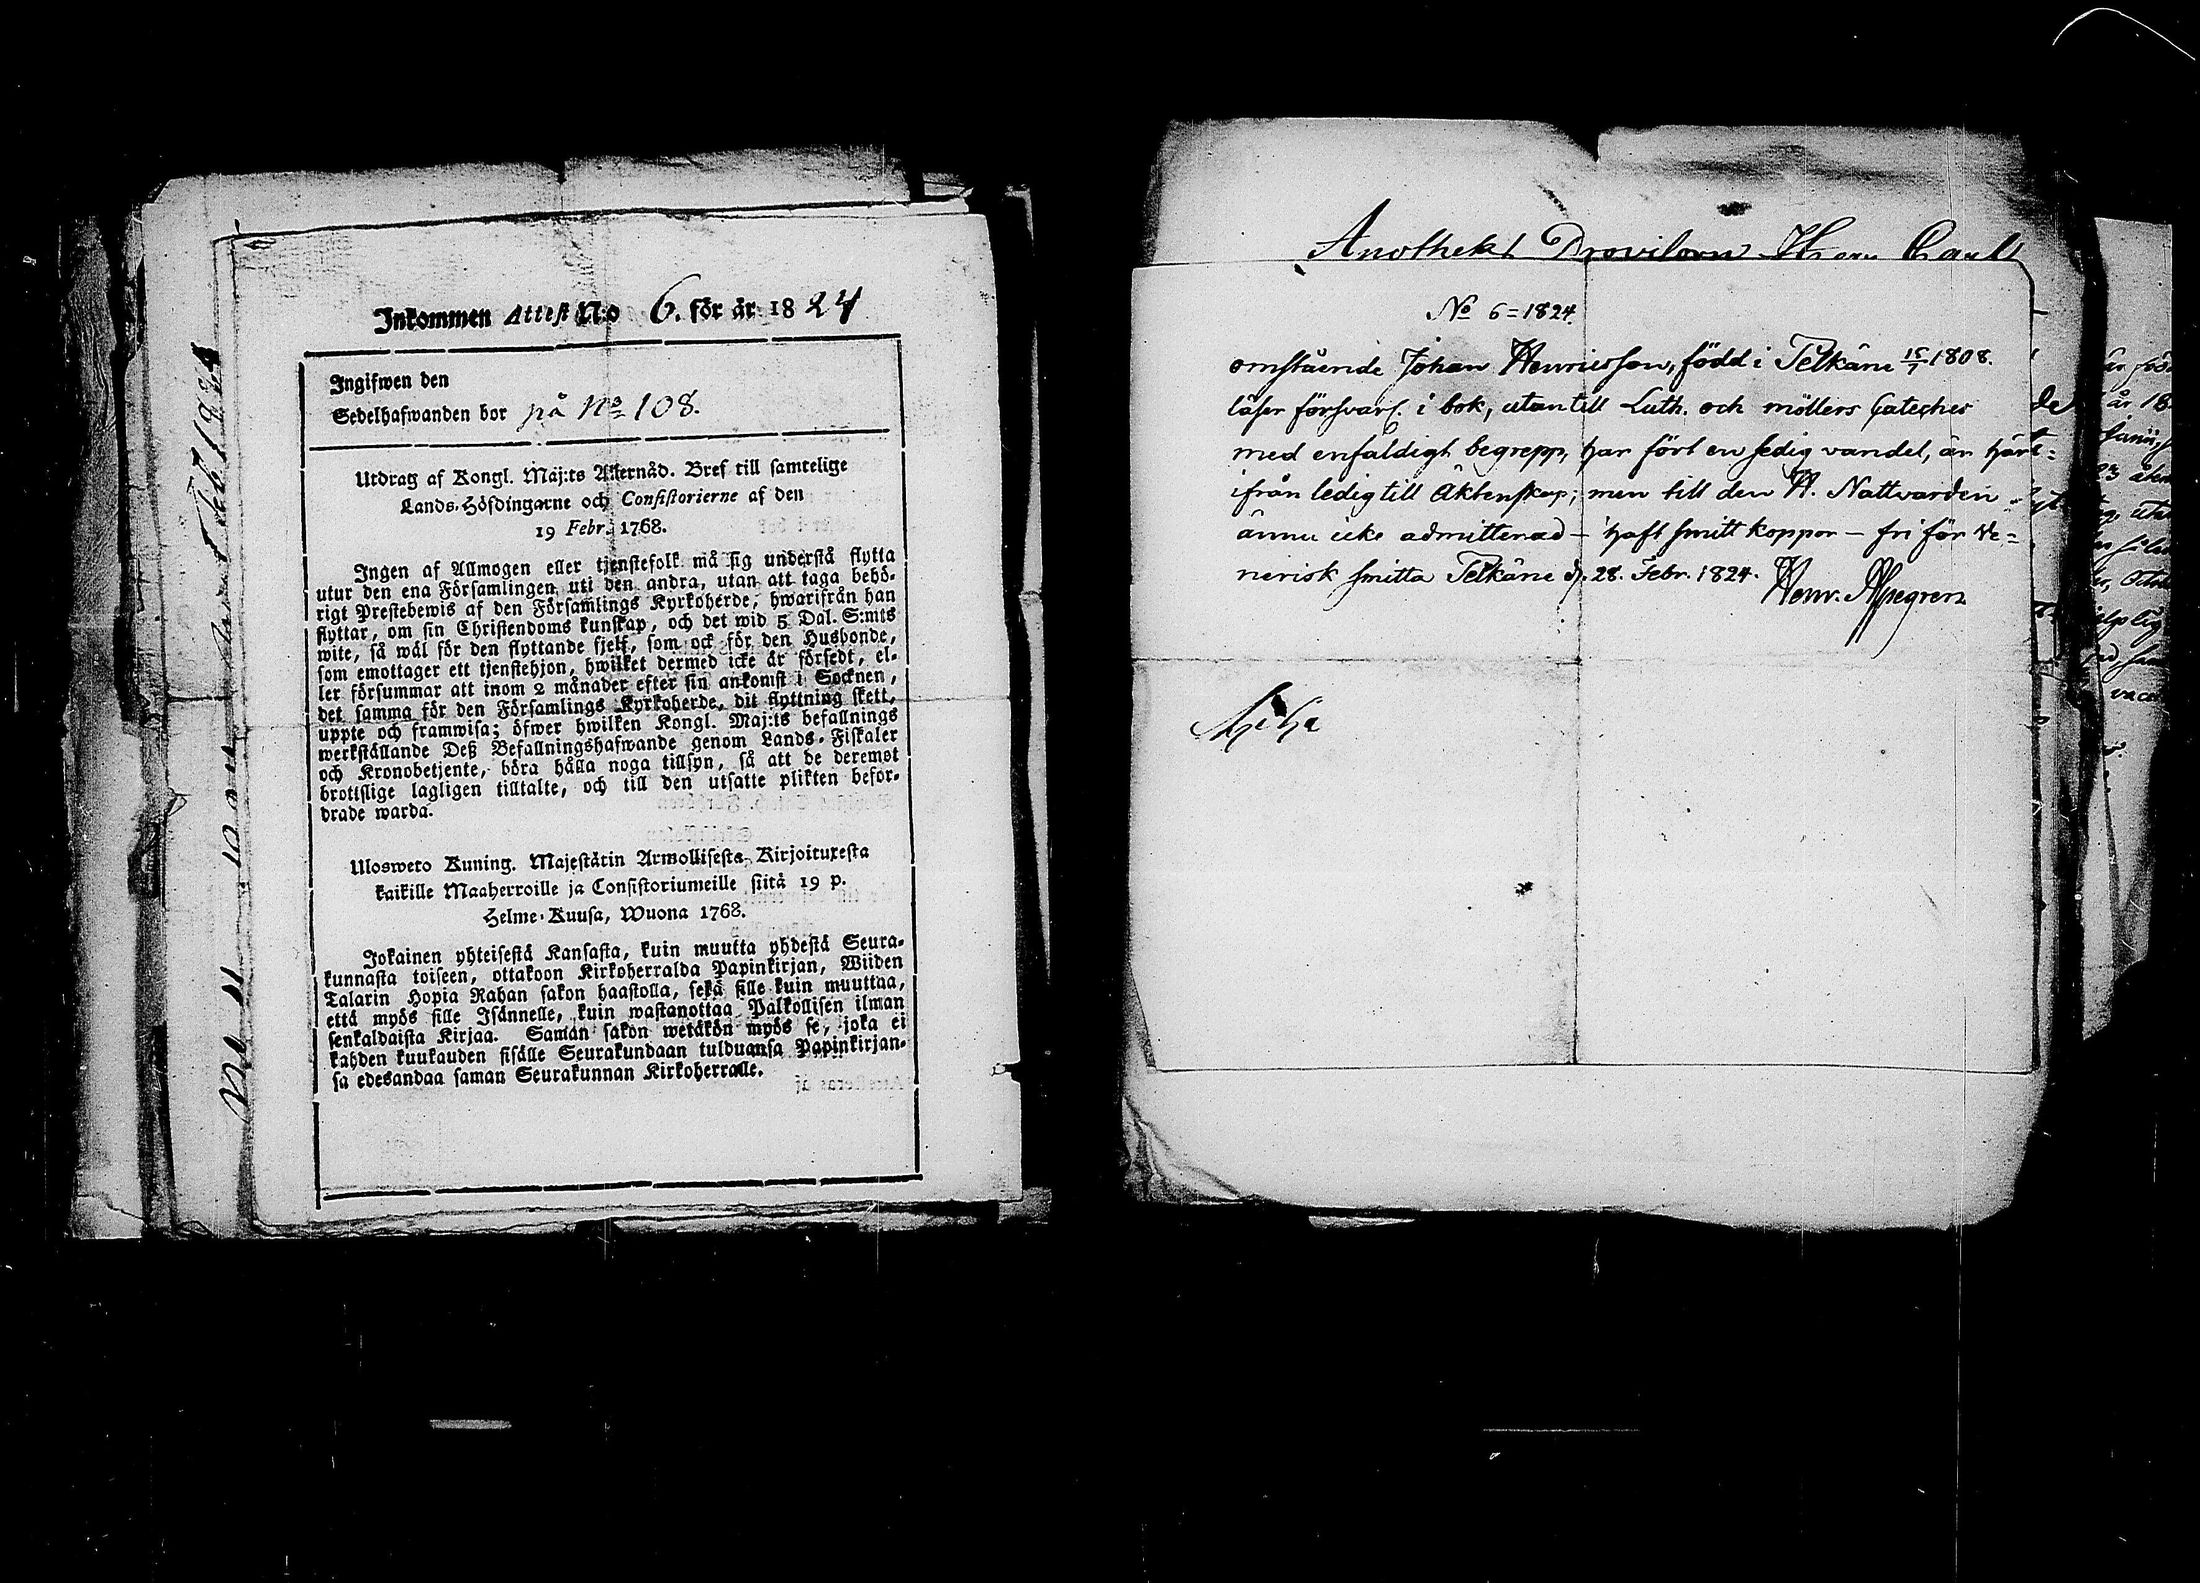 Inkommen Attest N:o 6. för år 1824
Ingifwen den
Sedelhafwanden bor på No 108.
Utdrag af Kongl. Maj:ts Allernåd. Bref till samtelige
Lands-Höfdingarne och Consistorierne af den
19 Febr. 1768.
Ingen af Allmogen eller tjenstefolk må sig understå flytta
utur den ena Församlingen uti den andra, utan att taga behö-
rigt Prestebewis af den Församlings Kyrkoherde, hwarifrån han
flyttar, om sin Christendoms kunskap, och det wid 5 Dal. S:mts
wite, så wäl för den flyttande sjelf, som ock för den Husbonde,
som emottager ett tjenstehjon, hwilket dermed icke är försedt, el-
ler försummar att inom 2 månader efter sin ankomst i Socknen,
det samma för den Församlings Kyrkoherde, dit flyttning skett,
uppte och framwisa; öfwer hwilken Kongl. Maj:ts befallnings
werkställande Deß Befallningshafwande genom Lands-Fiskaler
och Kronobetjente, böra hålla noga tillsyn, så att de deremot
brottslige lagligen tilltalte, och till den utsatte plikten befor-
drade warda.
Ulosweto Kuning. Majestätin Armollisesta Kirjoituxesta
kaikille Maaherroille ja Consistoriumeille siitä 19 p.
Helme-Kuusa, Wuona 1768.
Jokainen yhteisestä Kansasta, kuin muutta yhdestä Seura-
kunnasta toiseen, ottakoon Kirkoherralda Papinkirjan, Wiiden
Talarin Hopia Rahan sakon haastolla, sekä sille kuin muuttaa,
että myös sille Isännelle, kuin wastanottaa Palkollisen ilman
senkaldaista Kirjaa. Saman sakon wetäkön myös se, joka ei
kahden kuukauden sisälle Seurakundaan tulduansa Papinkirjan-
sa edesandaa saman Seurakunnan Kirkoherralle.
Apotheks Provisorn Herr Carl
No 6=1824.
omstående Johan Henricsson, född i Pelkäne 15/7 1808.
läser försvarl. i bok, utantill Luth. och möllers Cateches
med enfaldigt begrepp, har fört en sedig vandel, är här=
ifrån ledig till Äktenskap; men till den H. Nattvarden
ännu icke admitterad – haft smitt koppor – fri för Ve=
nerisk smitta Pelkäne d. 28. Febr. 1824.
Henr. Aspegren